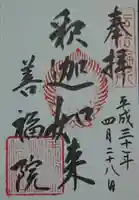 奉拝
平成三十年
四月二十八日
釈迦如来
善福院